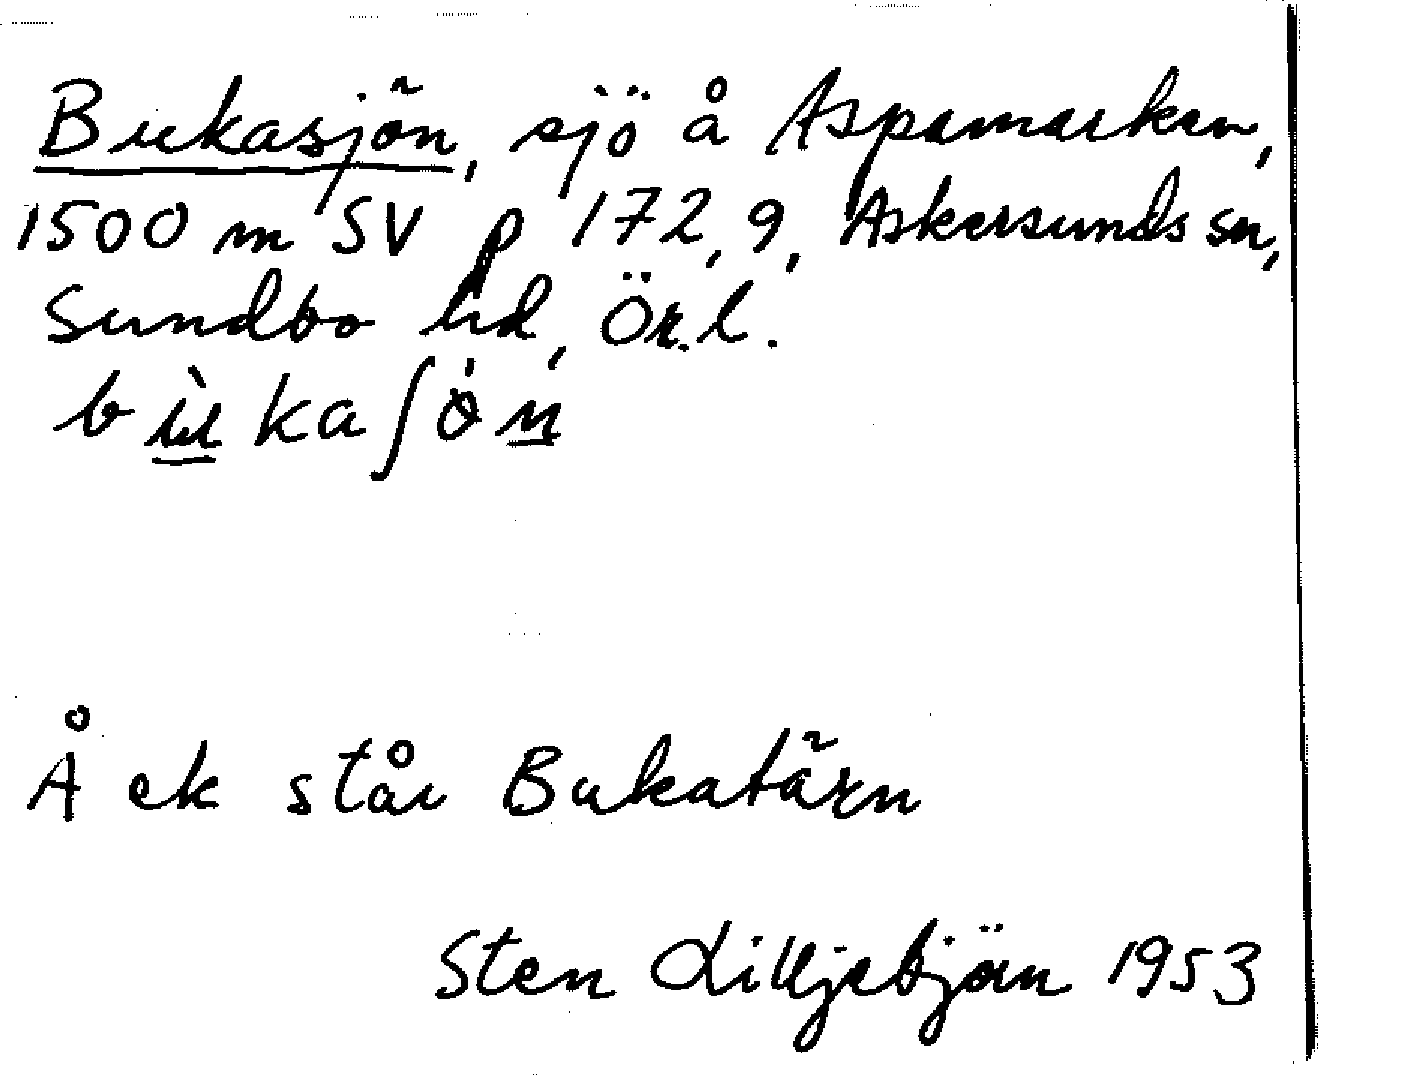 Bukasjön, sjö å Aspamarken,
1500 m SV p 172,9, Askersunds sn,
Sundbo hd, Ör.l.
bù̲kaʃön̲
Å ek står Bukatärn
Sten Lilljebjörn 1953